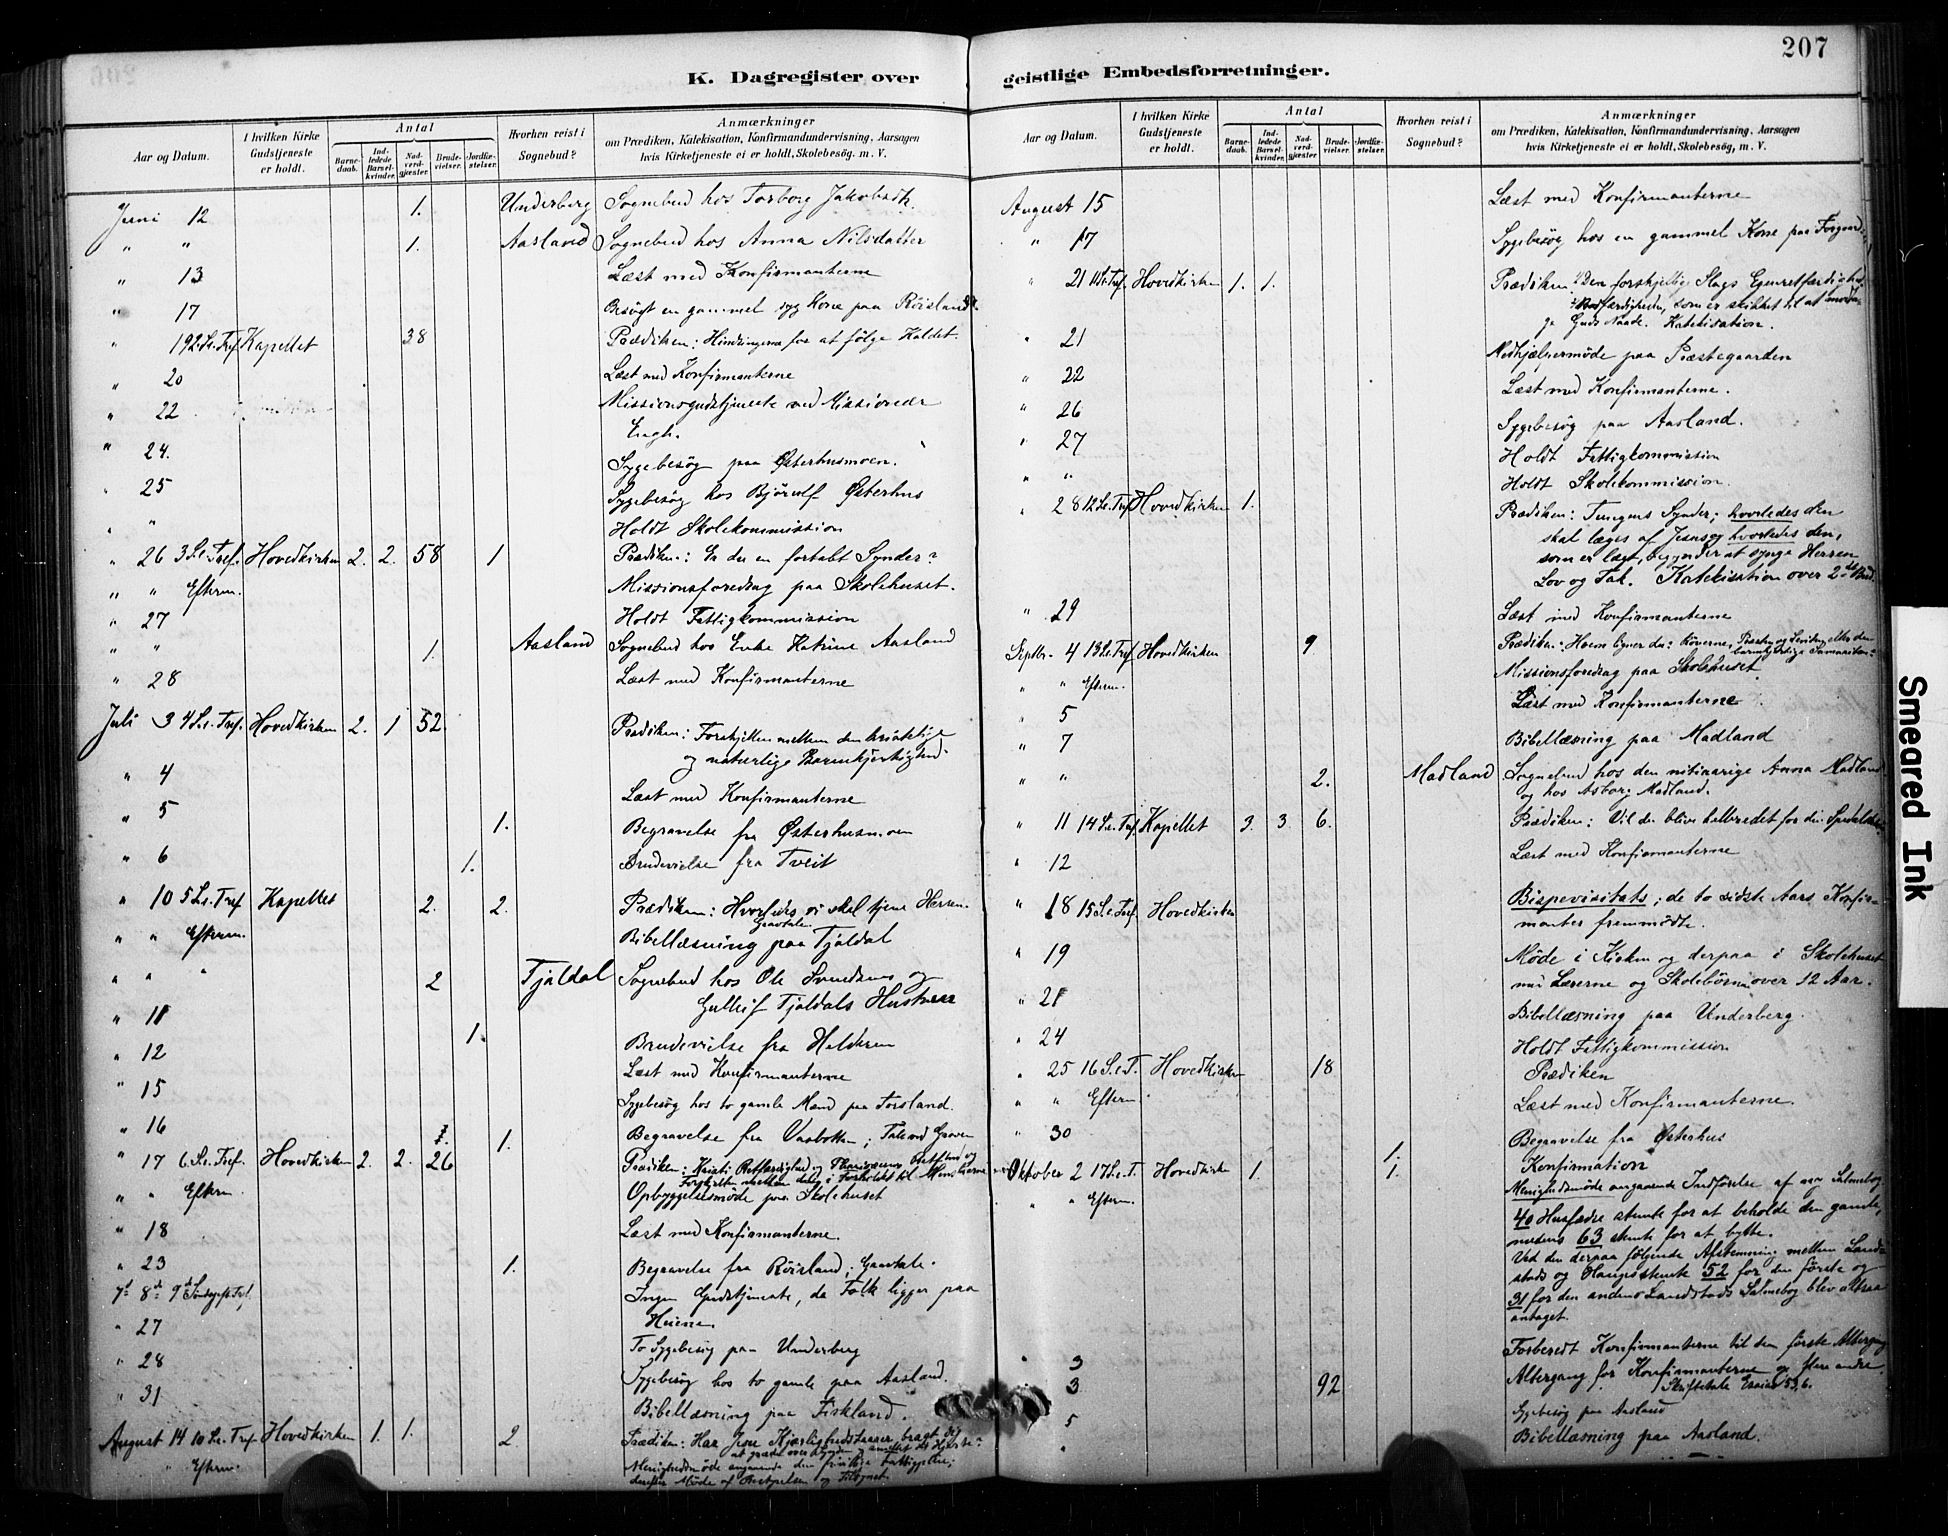 207
K. Dagregister over
geistlige Embedsforretninger.
Aar og Datum.
I hvilken Kirke Gudstjeneste er holdt.
Antal
Barnedaab.
Indledede Barselkvinder.
Nadverdgjæster.
Brudevielser.
Jordfæstelser.
Hvorhen reist i Sognebud?
Anmærkninger
om Prædiken, Katekisation, Konfirmandundervisning, Aarsagen
hvis Kirketjeneste ei er holdt, Skolebesøg. m. V.
Juni 12 1. Underberg Sognebud hos Torborg Jakobsdt.
" " 1. Aasland Sognebud hos Anna Nilsdatter
" 13 Læst med Konfirmanterne
" 17 Besøgt en gammel syg Kone paa Røisland
" 19 2. S.e. Tref. Kapellet 38 Prædiken: Hindringerne for at følge Kaldet.
" 20 Læst med Konfirmanterne
" 22 Missionsgudstjeneste med Missionær
Engh.
" 24. Sygebesøg paa Østerhusmoen.
" 25 Sygebesøg hos Bjørulf Østerhus
" " Holdt Skolekommission
" 26 3 S.e. Tref. Hovedkirken 2. 2. 58 1 Prædiken: Er du en fortabt Synder?
" " Efterm. Missionsforedrag paa Skolehuset.
" 27 Holdt Fattigkommission
" " 1. Aasland Sognebud hos Enke Katrine Aasland
" 28 Læst med Konfirmanterne
Juli 3 4 S.e. Tref. Hovedkirken 2. 1 52 Prædiken: Forskjellen mellem den kristelige
og naturlige Barmhjertighed
" 4 Læst med Konfirmanterne
" 5 1. Begravelse fra Østerhusmoen
" 6 1. Brudevielse fra Tveit
" 10 5 S.e. Tref Kapellet 2. 2. Prædiken: Hvorledes vi skal tjene Herren.
Gravtale.
" " Efterm. Bibellæsning paa Tjaldal
" " 2 Tjaldal Sognebud hos Ole Svendsens og
Gulleif Tjaldals Hustruer
" 11 1. Brudevielse fra Halderen
" 12 Læst med Konfirmanterne
" 15 Sygebesøg hos to gamle Mænd paa Forsland.
" 16 1. Begravelse fra Vasbotten; Tale ved Graven
" 17 6 S.e. Tref. Hovedkirken 2. 2. 26 Prædiken: Kristi Retfærdighed og Pharisæernes Retfærd og
Forskjellen mellem dem i Forholdet til Menneskene
" " Efterm. Opbyggelsesmøde paa Skolehuset
" 18 Læst med Konfirmanterne.
" 23 1. Begravelse fra Røisland; Gravtale.
7de 8de 9de Søndag eft. Tref. Ingen Gudstjeneste, da Folk ligger paa
Heierne.
" 27 To Sygebesøg paa Underberg
" 28 Sygebesøg hos to gamle paa Aasland.
" 31 Bibellæsning paa Fiskland.
August 14 10 S.e. Tref Hovedkirken 1. 1. 2. Prædiken: Har Jesu Kjærlighedstaarer bragt dig
at græde over Synden og
" Efterm. Menighedsmøde angaaende den frivillige Fattigpleie;
derefter Møde af Bestyrelsen og Tilsynet.
Aar og Datum.
I hvilken Kirke Gudstjeneste er holdt.
Antal
Barnedaab.
Indledede Barselkvinder.
Nadverdgjæster.
Brudevielser.
Jordfæstelser.
Hvorhen reist i Sognebud?
Anmærkninger
om Prædiken, Katekisation, Konfirmandundervisning, Aarsagen
hvis Kirketjeneste ei er holdt, Skolebesøg, m. V.
August 15 Læst med Konfirmanterne
" 17 Sygebesøg hos en gammel Kone paa
" 21 11 S.e. Tref. Hovedkirken 1. 1. Prædiken: 1) Den forskjellige Slags Egenretfærdighed
2) Bodfærdigheden, som er skikket til at modta-
ge Guds Naade. Katekisation.
" 21 Medhjælpermøde paa Præstegaarden
" 22 Læst med Konfirmanterne.
" 26 Sygebesøg paa Aasland.
" 27 Holdt Fattigkommission
" " Holdt Skolekommission.
" 28 12 S.e. Tref Hovedkirken 1. Prædiken: Tungens Synder; hvorledes den
skal læges af Jesus og hvorledes den,
som er lægt, begynder at synge Herren
Lov og Tak. Katekisation over 2det Bud.
" 29 Læst med Konfirmanterne
Septbr. 4 13 S.e. Tref Hovedkirken 9. Prædiken: Hvem ligner du: Røverne, Præsten og Leviten eller den
barmhjertige Samaritan?
" " Efterm. Missionsforedrag paa Skolehuset
" 5 Læst med Konfirmanterne
" 7 Bibellæsning paa Madland
" " 2. Madland Sognebud hos den nitiaarige Anna Madland
og hos Asborg Madland.
" 11 14 S.e. Tref Kapellet 3. 3. 6. Prædiken: Vil du blive helbredet for din
" 12 Læst med Konfirmanterne
" 18 15 S.e. Tref Hovedkirken Bispevisitats; de to sidste Aars Konfir-
manter fremmødte.
" 19 Møde i Kirken og derpaa i Skolehuset
med Lærerne og Skolebørn over 12 Aar.
" 21 Bibellæsning paa Underberg.
" 24 Holdt Fattigkommission
" 25 16 S.e.T. Hovedkirken 18 Prædiken
" " Efterm Læst med Konfirmanterne.
" 30 1. Begravelse fra Østerhus
Oktober 2 17 S.e.T. Hovedkirken 1. 1. Konfirmation
" " Efterm. Menighedsmøde angaaende Indførelse af ny Salmebog
40 Husfædre stemte for at beholde den gamle,
medens 63 stemte for at bytte.
Ved den derpaa følgende Afstemning mellem Land-
stads og Hauges stemte 52 for den første og
31 for den anden. Landstads Salmebog blev altsaa
antaget.
" 3 Forberedt Konfirmanterne til den første Altergang
" 3 92 Altergang for Konfirmanterne og flere andre
Skriftetale Esaias 53,6.
" 5 Sygebesøg paa Aasland
" Bibellæsning paa Aasland.
Smeared Ink